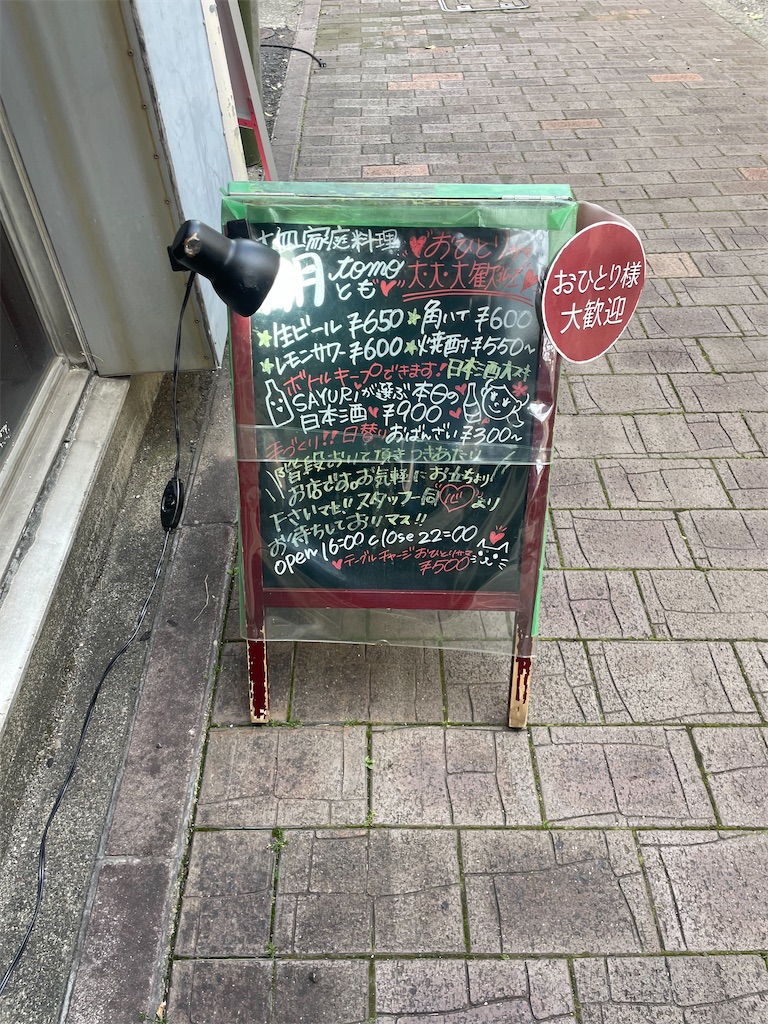 家庭料理
朋 tomo とも
♥おひとり様
大・大・大歓迎!!
おひとり様
大歓迎
生ビール ¥650 角ハイ ¥600
レモンサワー ¥600 焼酎 ¥550~
ボトルキープできます! 日本酒大スキ
SAYURIが選ぶ本日の
日本酒♥¥900
手づくり!!日替りおばんざい ¥300~
階段おりて頂きつきあたり
お店です。お気軽にお立ちより
下さいマセ!!スタッフ一同 心 より
お待ちしておりマス!!
open 16:00 close 22:00
♥テーブルチャージおひとり様
¥500